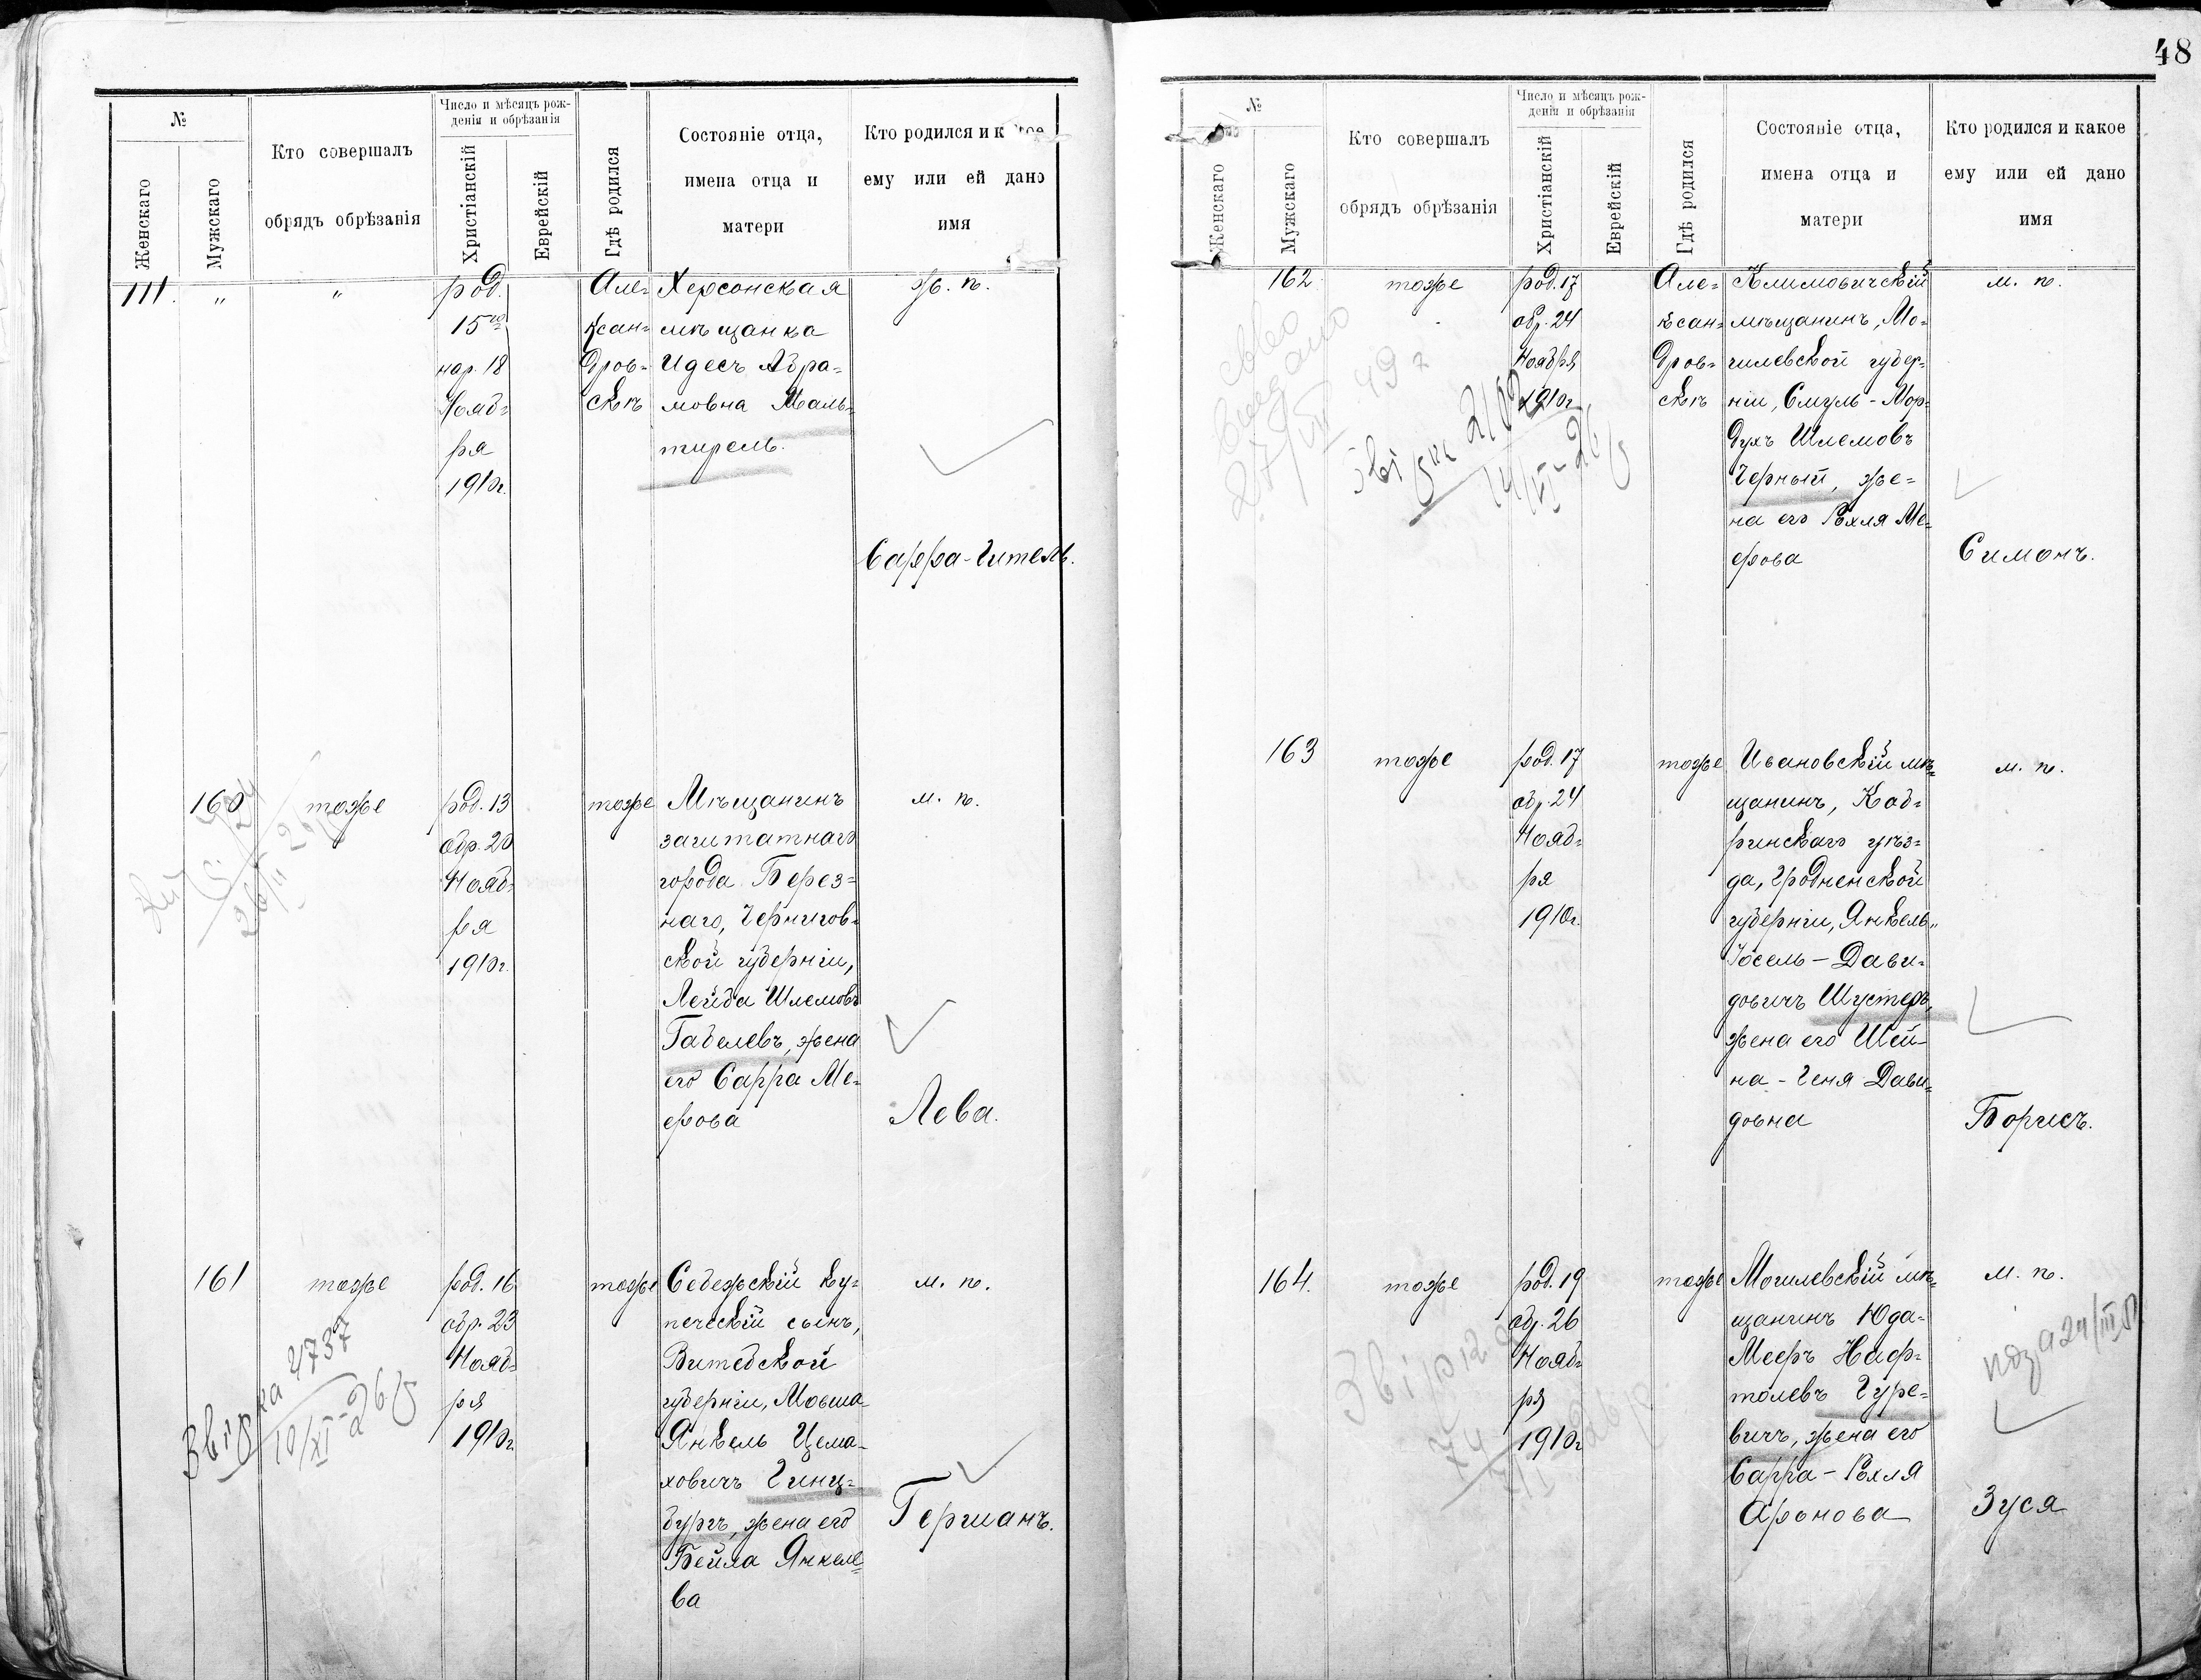 48
№
Женскаго
Мужскаго
Кто совершалъ
обрядъ обрѣзанія
Число и мѣсяцъ рож-
денія и обрѣзанія
Христіанскій
Еврейскій
Гдѣ родился
Состояніе отца,
имена отца и
матери
Кто родился и
ему или ей дано
имя
111.
"
"
род.
15го
нар. 18
Нояб=
ря
1910г.
Але=
ксан=
дров=
скѣ
Херсонская
мѣщанка
Идесъ Абра=
мовна Маль=
тирель.
ж. п.
Сарра-Гитель.
160
тоже
род. 13
обр. 20
Нояб=
ря
1910г.
тоже
Мѣщанинъ
заштатнаго
города Берез=
наго, Чернигов=
ской губерніи,
Лейба Шлемовъ
Габелевъ, жена
его Сарра Ме=
ерова
м. п.
Лева.
161
тоже
род. 16
обр. 23
Нояб=
ря
1910г
тоже
Себежскій ку=
печескій сынъ,
Витебской
губерніи, Мовша-
Янкель Цема-
ховичъ Гинц=
бургъ, жена его
Бейла Янкеле=
ва
м. п.
Германъ.
Звірка 4737
10/XI-26р
№
Женскаго
Мужскаго
Кто совершалъ
обрядъ обрѣзанія
Число и мѣсяцъ рож-
денія и обрѣзанія
Христіанскій
Еврейскій
Гдѣ родился
Состояніе отца,
имена отца и
матери
Кто родился и какое
ему или ей дано
имя
162
тоже
род. 17
обр. 24
Ноября
1910г
Але=
ксан=
дров=
скѣ
Климовичскій
мѣщанинъ, Мо=
гилевской губер=
ніи, Смуль-Мор=
духъ Шлемовъ
Черный, же=
на его Рохля Ме=
ерова
м. п.
Симонъ.
163
тоже
род. 17
обр. 24
Нояб=
ря
1910г.
тоже
Ивановскій мѣ=
щанинъ, Коб=
ринскаго уѣз=
да, Гродненской
губерніи, Янкель=
Іосель-Дави=
довичъ Шустеръ,
жена его Шей-
на-Геня Дави=
довна
м. п.
Борисъ.
164.
тоже
род. 19
обр. 26
Нояб=
ря
1910г
тоже
Могилевскій мѣ=
щанинъ Юда-
Мееръ Наф=
толевъ Гуре=
вичъ, жена его
Сарра-Рохля
Аронова
м. п.
Зуся